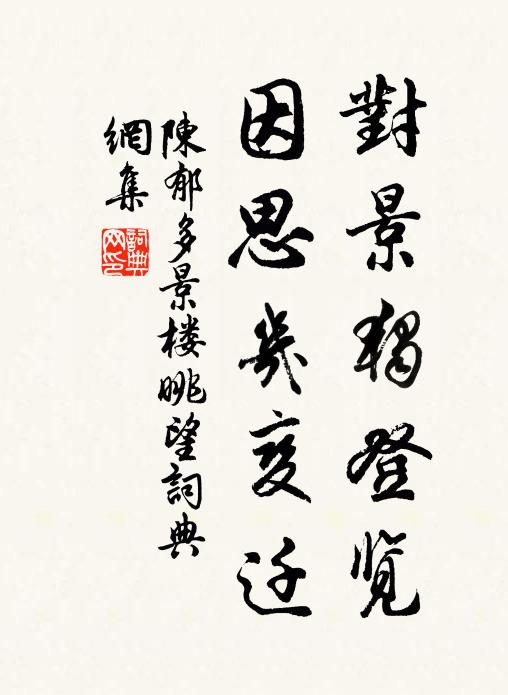 對景獨登覽
因思幾变迁
陳郁多景楼眺望詞典
網集
詞典
网印